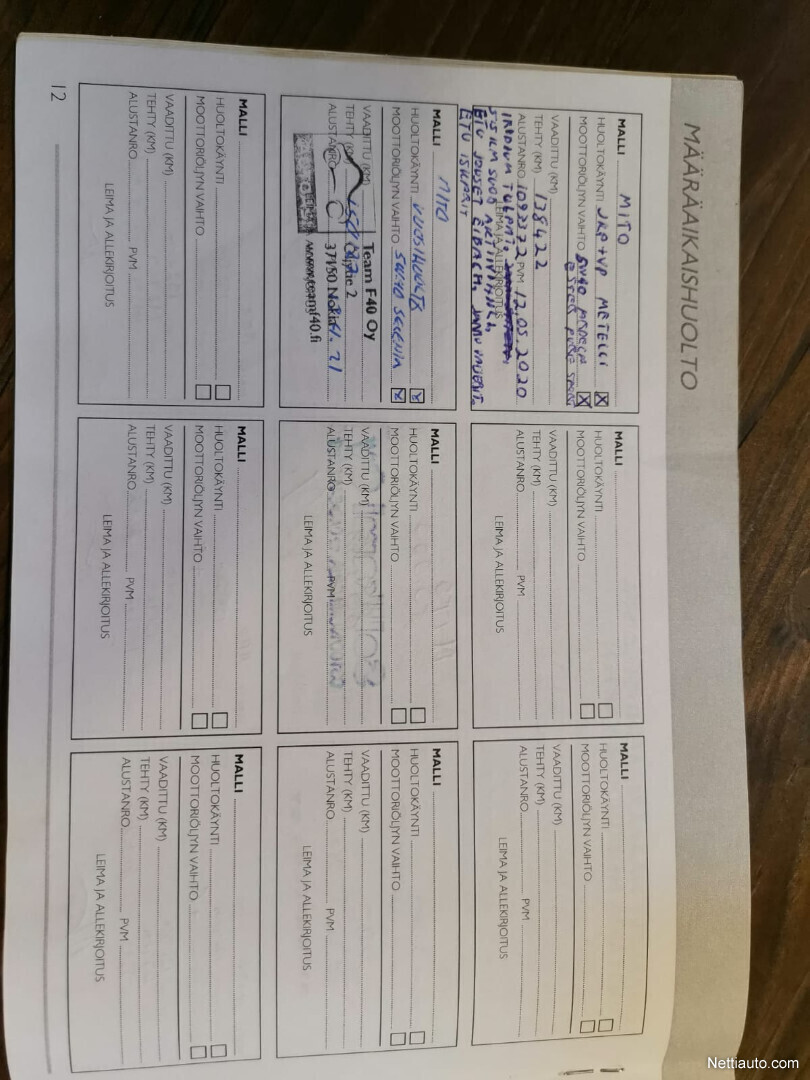 MÄÄRÄAIKAISHUOLTO
MALLI MITO
HUOLTOKÄYNTI JKP+VP METELLI
MOOTTORIÖLJYN VAIHTO 5W40
VAADITTU (KM)
TEHTY (KM) 138422
ALUSTANRO 1092372 PVM 12.05.2020
LEIMA JA ALLEKIRJOITUS
IRIDIUM TULPAT.
ETU JOUSET EIBACH.
ETU ISKARIT
MALLI
HUOLTOKÄYNTI
MOOTTORIÖLJYN VAIHTO
VAADITTU (KM)
TEHTY (KM)
ALUSTANRO PVM
LEIMA JA ALLEKIRJOITUS
MALLI
HUOLTOKÄYNTI
MOOTTORIÖLJYN VAIHTO
VAADITTU (KM)
TEHTY (KM)
ALUSTANRO PVM
LEIMA JA ALLEKIRJOITUS
MALLI MITO
HUOLTOKÄYNTI VUOSIHUOLTO
MOOTTORIÖLJYN VAIHTO 5W40 SELENIA
VAADITTU (KM)
TEHTY (KM)
ALUSTANRO
Team F40 Oy
37150 Nokia
www.teamf40.fi
MALLI
HUOLTOKÄYNTI
MOOTTORIÖLJYN VAIHTO
VAADITTU (KM)
TEHTY (KM)
ALUSTANRO PVM
LEIMA JA ALLEKIRJOITUS
MALLI
HUOLTOKÄYNTI
MOOTTORIÖLJYN VAIHTO
VAADITTU (KM)
TEHTY (KM)
ALUSTANRO PVM
LEIMA JA ALLEKIRJOITUS
MALLI
HUOLTOKÄYNTI
MOOTTORIÖLJYN VAIHTO
VAADITTU (KM)
TEHTY (KM)
ALUSTANRO PVM
LEIMA JA ALLEKIRJOITUS
MALLI
HUOLTOKÄYNTI
MOOTTORIÖLJYN VAIHTO
VAADITTU (KM)
TEHTY (KM)
ALUSTANRO PVM
LEIMA JA ALLEKIRJOITUS
MALLI
HUOLTOKÄYNTI
MOOTTORIÖLJYN VAIHTO
VAADITTU (KM)
TEHTY (KM)
ALUSTANRO PVM
LEIMA JA ALLEKIRJOITUS
12
Nettiauto.com